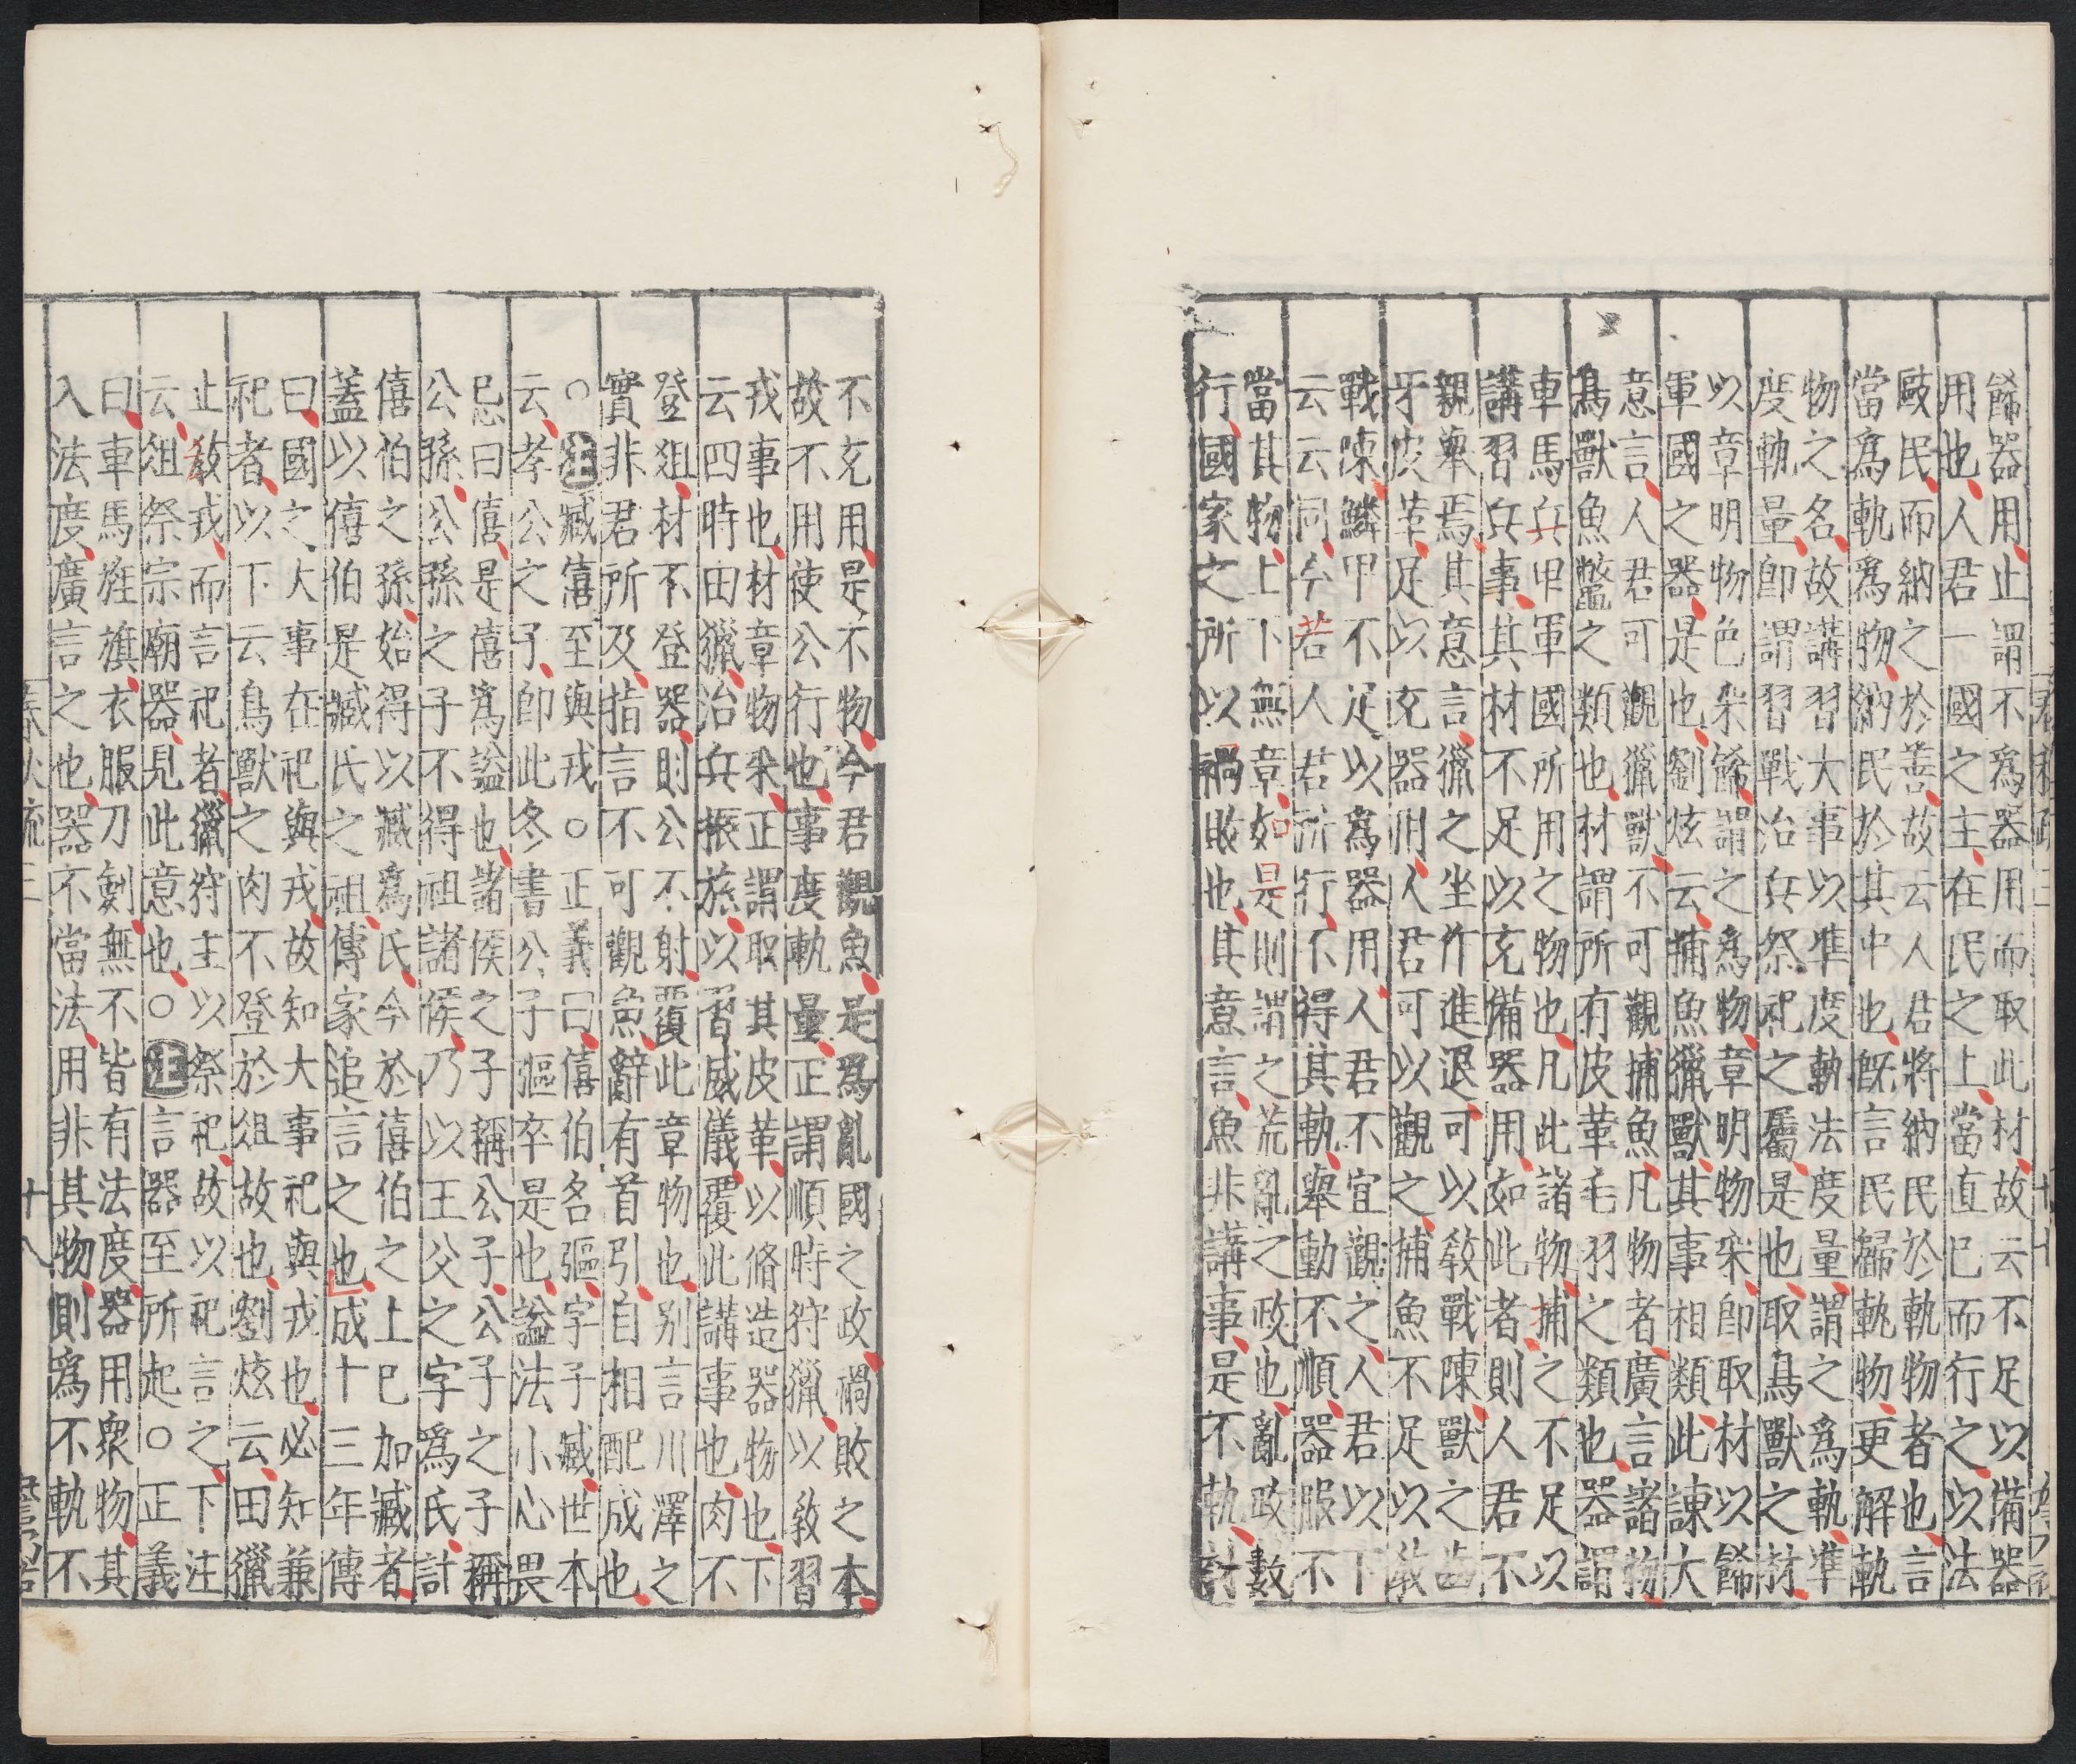 餙器用止謂不爲器用而取此材故云不足以備器
用也人君一國之主在民之上當直巳而行之以法
敺民而納之於善故云人君將納民於軌物者也言
當爲軌爲物納民於其中也旣言民歸軌物更解軌
物之名故講習大事以準度軌法度量謂之爲軌準
度軌量卽謂習戰治兵祭祀之屬是也取鳥獸之材
以章明物色采餙謂之爲物章明物采卽取材以餙
軍國之器是也劉炫云捕魚獵獸其事相類此諌大
意言人君可觀獵獸不可觀捕魚凡物者廣言諸物
鳥獸魚鼈之類也材謂所有皮革毛羽之類也器謂
車馬兵甲軍國所用之物也凡此諸物捕之不足以
講習兵事其材不足以充備器用如此者則人君不
親舉焉其意言獵之坐作進退可以敎戰陳獸之齒
牙皮革足以充器用人君可以觀之捕魚不足以敎
戰陳鱗甲不足以爲器用人君不宜觀之人君以下
云云同今若人君所行不得其軌舉動不順器服不
當其物上下無章如是則謂之荒亂之政也亂政數
行國家之所以禍敗也其意言魚非講事是不軌討
不充用是不物今君觀魚是爲亂國之政禍敗之本
故不用使公行也事度軌量正謂順時狩獵以敎習
戎事也材章物采正謂取其皮革以脩造器物也下
云四時田獵治兵振旅以習威儀覆此講事也肉不
登俎材不登器則公不射覆此章物也别言川澤之
實非君所及指言不可觀魚辭有首引自相配成也
○注臧僖至與戎○正義曰僖伯名彄字子臧世本
云孝公之子卽此冬書公子彄卒是也謚法小心畏
忌曰僖是僖爲謚也諸侯之子稱公子公子之子稱
公孫公孫之子不得祖諸侯乃以王父之字爲氏計
僖伯之孫始得以臧爲氏今於僖伯之上巳加臧者
蓋以僖伯是臧氏之祖傳家追言之也成十三年傳
曰國之大事在祀與戎故知大事祀與戎也必知兼
祀者以下云鳥獸之肉不登於俎故也劉炫云田獵
止敎戎而言祀者獵狩主以祭祀故以祀言之下注
云俎祭宗廟器見此意也○注言器至所起○正義
曰車馬旌旗衣服刀劍無不皆有法度器用衆物其
入法度廣言之也器不當法用非其物則爲不軌不
春秋疏三
十八